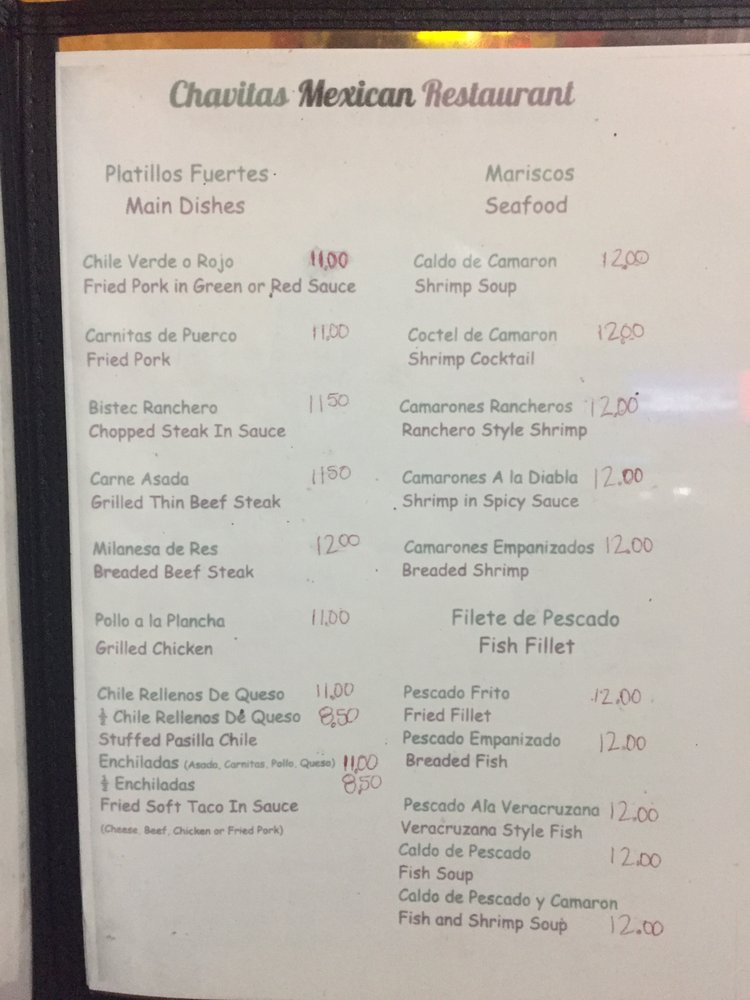 Chavitas Mexican Restaurant
Platillos Fuertes
Main Dishes
Chile Verde o Rojo 11.00
Fried Pork in Green or Red Sauce
Carnitas de Puerco 11.00
Fried Pork
Bistec Ranchero 1150
Chopped Steak In Sauce
Carne Asada 1150
Grilled Thin Beef Steak
Milanesa de Res 1200
Breaded Beef Steak
Pollo a la Plancha 11.00
Grilled Chicken
Chile Rellenos De Queso 11.00
½ Chile Rellenos De Queso 8.50
Stuffed Pasilla Chile
Enchiladas (Asada, Carnitas, Pollo, Queso) 11.00
½ Enchiladas 8.50
Fried Soft Taco In Sauce
(Cheese, Beef, Chicken or Fried Pork)
Mariscos
Seafood
Caldo de Camaron 12.00
Shrimp Soup
Coctel de Camaron 12.00
Shrimp Cocktail
Camarones Rancheros 12.00
Ranchero Style Shrimp
Camarones A la Diabla 12.00
Shrimp in Spicy Sauce
Camarones Empanizados 12.00
Breaded Shrimp
Filete de Pescado
Fish Fillet
Pescado Frito 12.00
Fried Fillet
Pescado Empanizado 12.00
Breaded Fish
Pescado Ala Veracruzana 12.00
Veracruzana Style Fish
Caldo de Pescado 12.00
Fish Soup
Caldo de Pescado y Camaron
Fish and Shrimp Soup 12.00